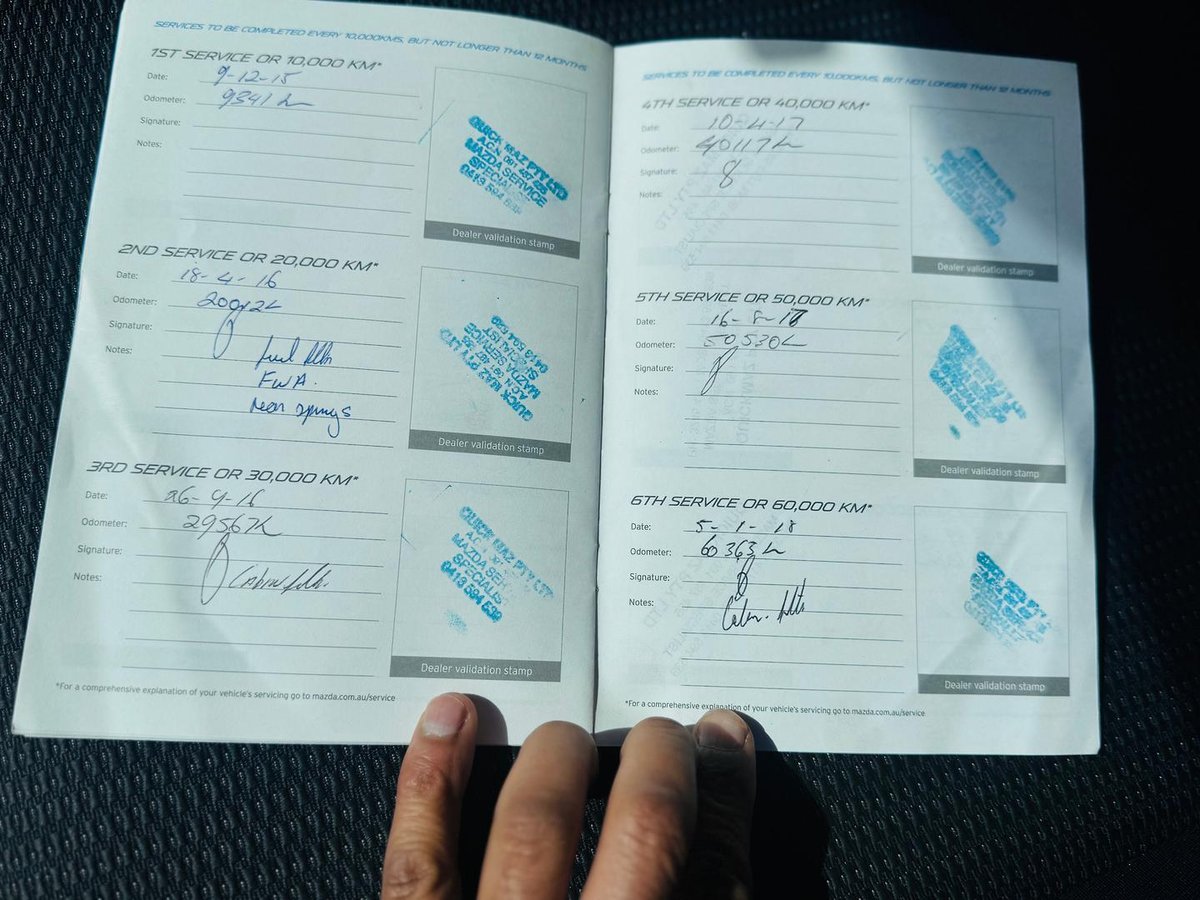 SERVICES TO BE COMPLETED EVERY 10,000KMS, BUT NOT LONGER THAN 12 MONTHS
1ST SERVICE OR 10,000 KM*
Date: 9-12-15
Odometer: 9341
Signature:
Notes:
QUICK MAZ PTY LTD
MAZDA SERVICE
SPECIALIST
Dealer validation stamp
2ND SERVICE OR 20,000 KM*
Date: 18-4-16
Odometer:
Signature:
Notes:
Rear springs
QUICK MAZ PTY LTD
MAZDA SERVICE
SPECIALIST
Dealer validation stamp
3RD SERVICE OR 30,000 KM*
Date: 26-9-16
Odometer: 29567
Signature:
Notes:
QUICK MAZ PTY LTD
SPECIALIST
0413 594 539
Dealer validation stamp
*For a comprehensive explanation of your vehicle's servicing go to mazda.com.au/service
SERVICES TO BE COMPLETED EVERY 10,000KMS, BUT NOT LONGER THAN 12 MONTHS
4TH SERVICE OR 40,000 KM*
Date: 10-4-17
Odometer: 40117
Signature:
Notes:
Dealer validation stamp
5TH SERVICE OR 50,000 KM*
Date: 16-8-17
Odometer: 50530
Signature:
Notes:
Dealer validation stamp
6TH SERVICE OR 60,000 KM*
Date: 5-1-18
Odometer: 60363
Signature:
Notes:
Dealer validation stamp
*For a comprehensive explanation of your vehicle's servicing go to mazda.com.au/service